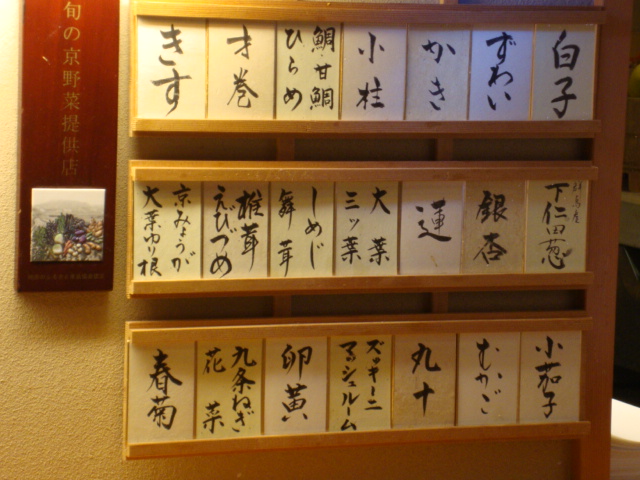 旬の京野菜提供店
白子
ずわい
かき
小柱
鯛甘鯛
ひらめ
才巻
きす
群馬産
下仁田葱
銀杏
蓮
大葉
三ッ葉
しめじ
舞茸
椎茸
えびづめ
京みょうが
大葉ゆり根
小茄子
むかご
丸十
ズッキーニ
マッシュルーム
卵黄
九条ねぎ
花菜
春菊